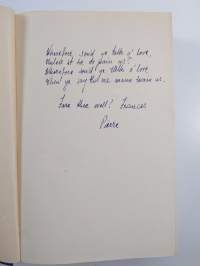 Wherefore, sould ye talk o' love,
Unless it be to pain us?
Wherefore sould ye talk o' love
When ye say the sea maun twain us.
Fare thee well! Frances
Pierre